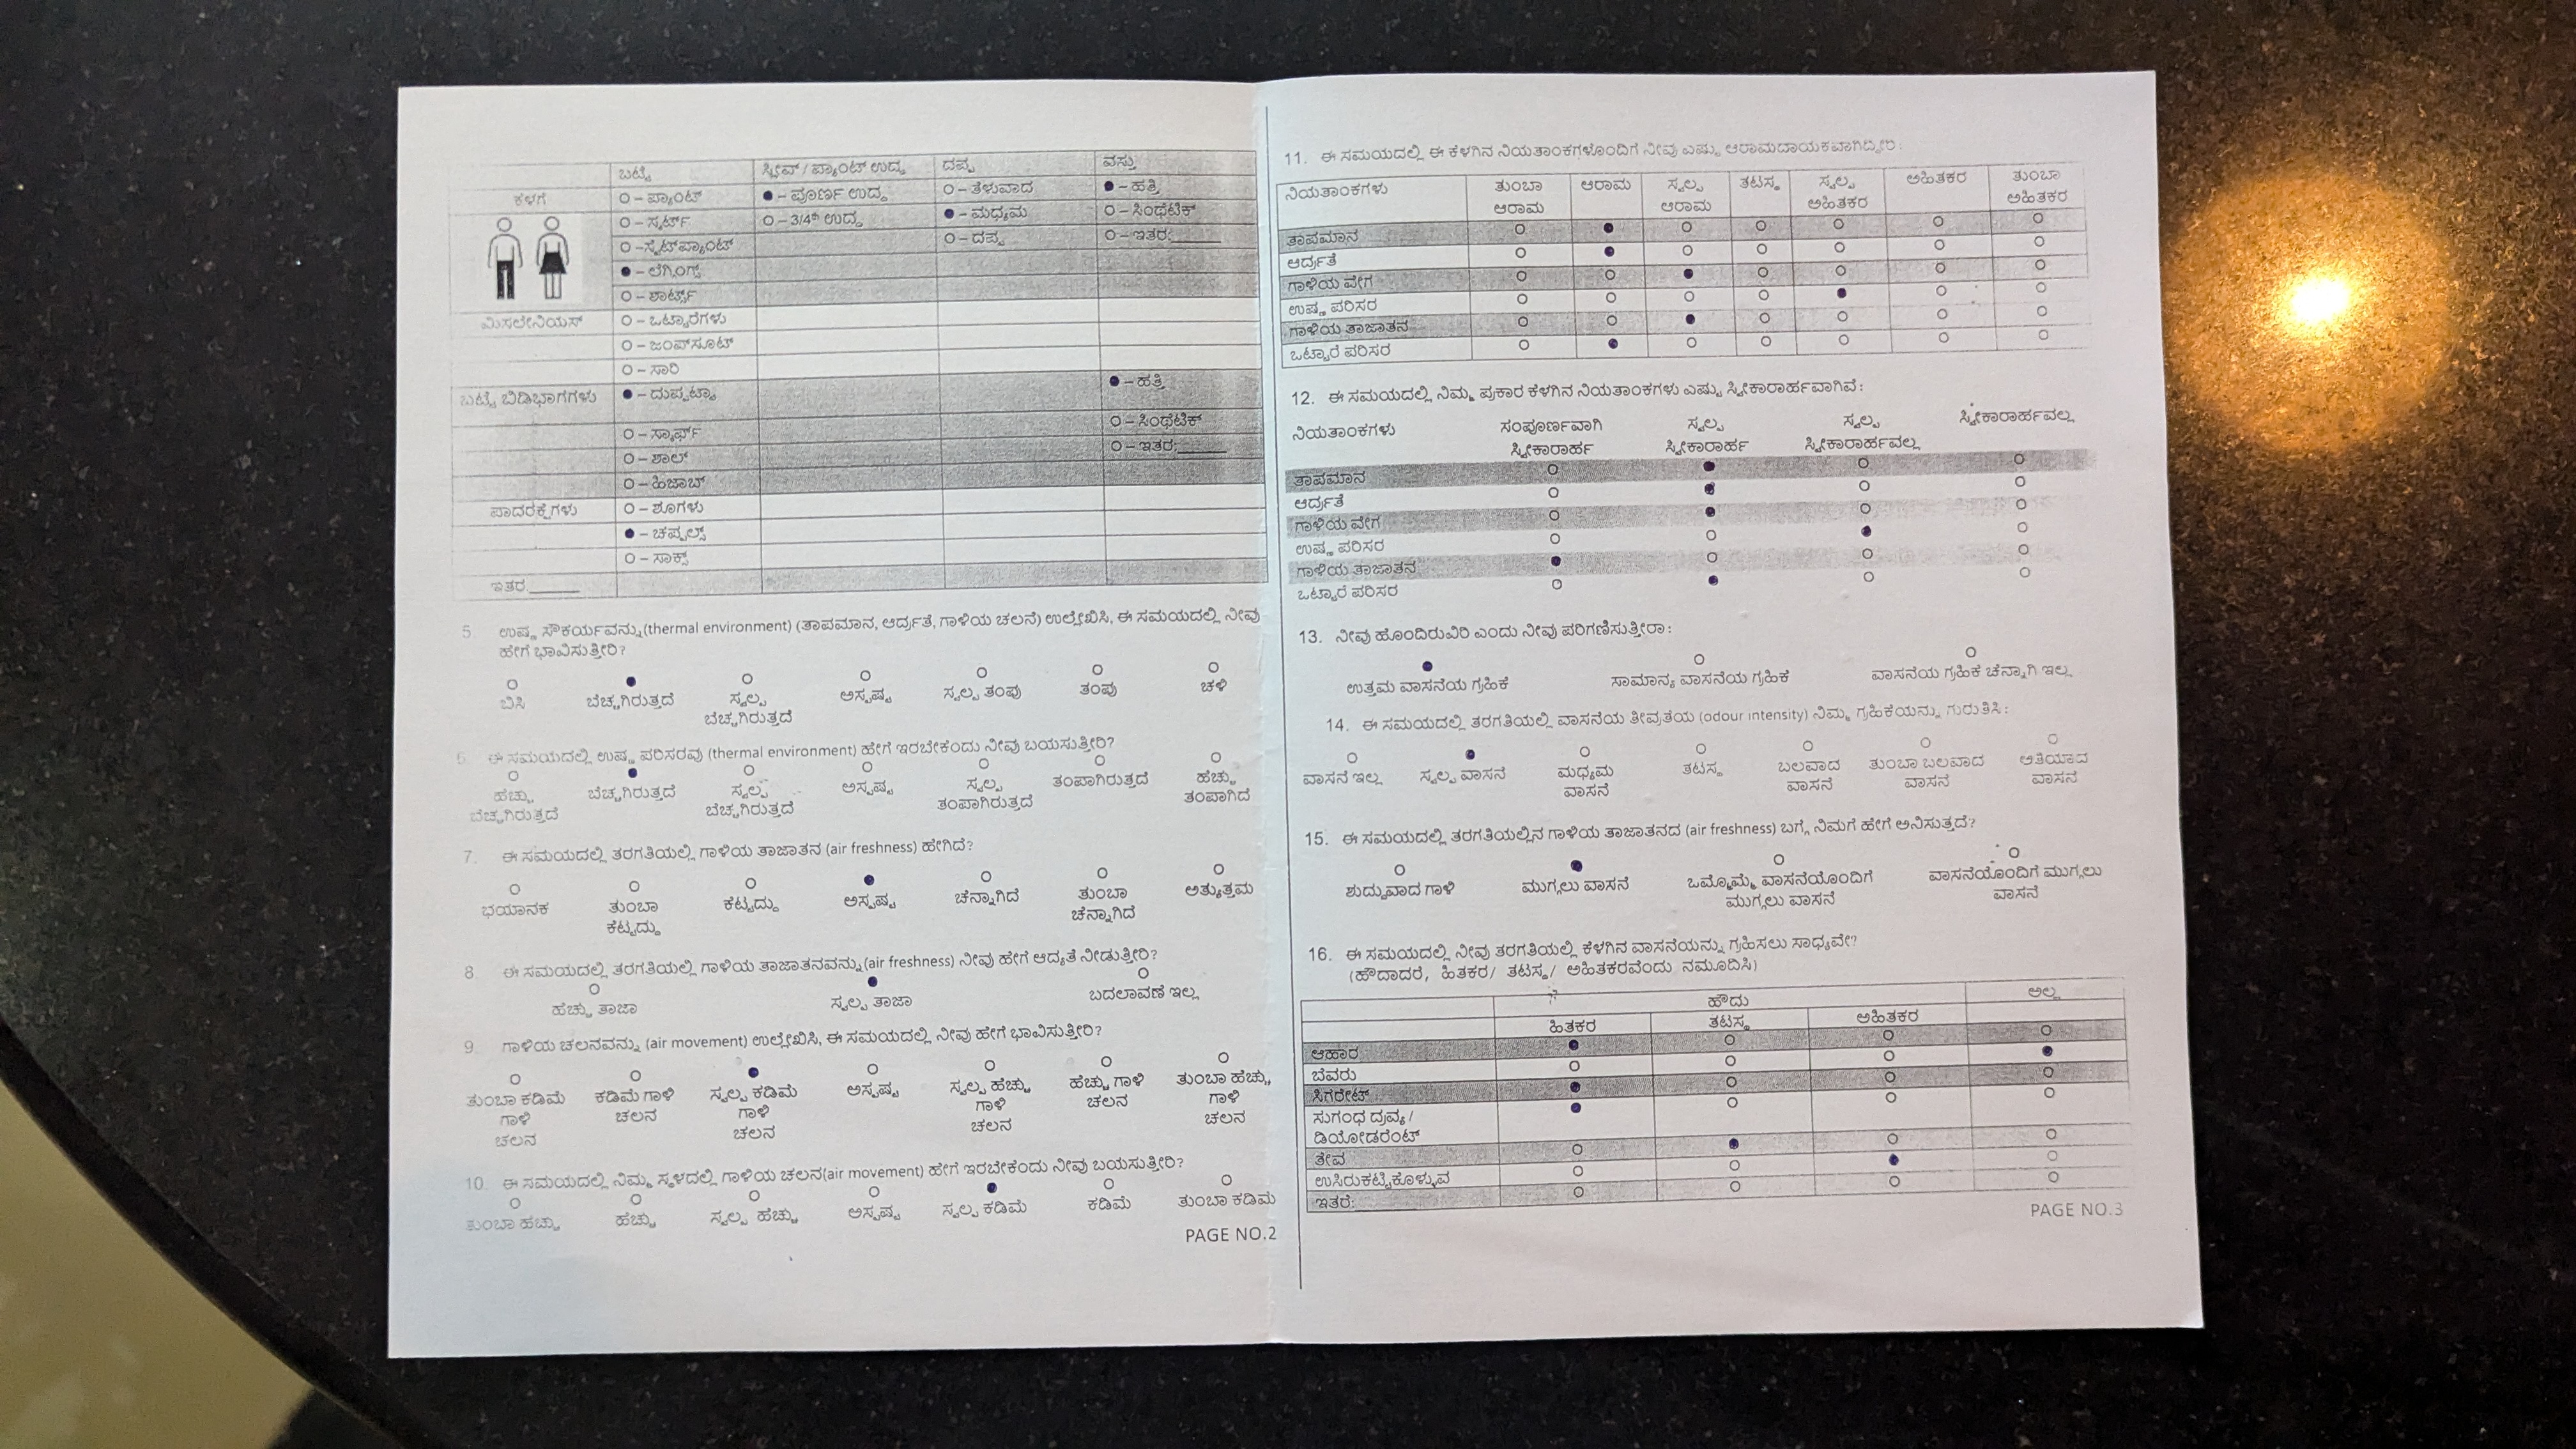 ಬಟ್ಟೆ ಸ್ಲೀವ್ / ಪ್ಯಾಂಟ್ ಉದ್ದ ದಪ್ಪ ವಸ್ತು
ಕೆಳಗೆ ○ – ಪ್ಯಾಂಟ್ ● – ಪೂರ್ಣ ಉದ್ದ ○ – ತೆಳುವಾದ ● – ಹತ್ತಿ
○ – ಸ್ಕರ್ಟ್ ○ – 3/4th ಉದ್ದ ● – ಮಧ್ಯಮ ○ – ಸಿಂಥೆಟಿಕ್
○ – ಸ್ವೆಟ್‌ಪ್ಯಾಂಟ್ ○ – ದಪ್ಪ ○ – ಇತರ:______
● – ಲೆಗ್ಗಿಂಗ್ಸ್
○ – ಶಾರ್ಟ್ಸ್
ಮಿಸಲೇನಿಯಸ್ ○ – ಒಟ್ಟಾರೆಗಳು
○ – ಜಂಪ್‌ಸೂಟ್
○ – ಸಾರಿ
ಬಟ್ಟೆ ಬಿಡಿಭಾಗಗಳು ● – ದುಪ್ಪಟ್ಟಾ ● – ಹತ್ತಿ
○ – ಸ್ಕಾರ್ಫ್ ○ – ಸಿಂಥೆಟಿಕ್
○ – ಶಾಲ್ ○ – ಇತರ:______
○ – ಹಿಜಾಬ್
ಪಾದರಕ್ಷೆಗಳು ○ – ಶೂಗಳು
● – ಚಪ್ಪಲ್ಸ್
○ – ಸಾಕ್ಸ್
ಇತರ:______
5. ಉಷ್ಣ ಸೌಕರ್ಯವನ್ನು (thermal environment) (ತಾಪಮಾನ, ಆರ್ದ್ರತೆ, ಗಾಳಿಯ ಚಲನೆ) ಉಲ್ಲೇಖಿಸಿ, ಈ ಸಮಯದಲ್ಲಿ ನೀವು
ಹೇಗೆ ಭಾವಿಸುತ್ತೀರಿ?
○ ● ○ ○ ○ ○ ○
ಬಿಸಿ ಬೆಚ್ಚಗಿರುತ್ತದೆ ಸ್ವಲ್ಪ ಅಸ್ಪಷ್ಟ ಸ್ವಲ್ಪ ತಂಪು ತಂಪು ಚಳಿ
ಬೆಚ್ಚಗಿರುತ್ತದೆ
6. ಈ ಸಮಯದಲ್ಲಿ ಉಷ್ಣ ಪರಿಸರವು (thermal environment) ಹೇಗೆ ಇರಬೇಕೆಂದು ನೀವು ಬಯಸುತ್ತೀರಿ?
○ ● ○ ○ ○ ○ ○
ಹೆಚ್ಚು ಬೆಚ್ಚಗಿರುತ್ತದೆ ಸ್ವಲ್ಪ ಅಸ್ಪಷ್ಟ ಸ್ವಲ್ಪ ತಂಪಾಗಿರುತ್ತದೆ ಹೆಚ್ಚು
ಬೆಚ್ಚಗಿರುತ್ತದೆ ಬೆಚ್ಚಗಿರುತ್ತದೆ ತಂಪಾಗಿರುತ್ತದೆ ತಂಪಾಗಿದೆ
7. ಈ ಸಮಯದಲ್ಲಿ ತರಗತಿಯಲ್ಲಿ ಗಾಳಿಯ ತಾಜಾತನ (air freshness) ಹೇಗಿದೆ?
○ ○ ○ ● ○ ○ ○
ಭಯಾನಕ ತುಂಬಾ ಕೆಟ್ಟದ್ದು ಅಸ್ಪಷ್ಟ ಚೆನ್ನಾಗಿದೆ ತುಂಬಾ ಅತ್ಯುತ್ತಮ
ಕೆಟ್ಟದ್ದು ಚೆನ್ನಾಗಿದೆ
8. ಈ ಸಮಯದಲ್ಲಿ ತರಗತಿಯಲ್ಲಿ ಗಾಳಿಯ ತಾಜಾತನವನ್ನು (air freshness) ನೀವು ಹೇಗೆ ಆದ್ಯತೆ ನೀಡುತ್ತೀರಿ?
○ ● ○
ಹೆಚ್ಚು ತಾಜಾ ಸ್ವಲ್ಪ ತಾಜಾ ಬದಲಾವಣೆ ಇಲ್ಲ
9. ಗಾಳಿಯ ಚಲನವನ್ನು (air movement) ಉಲ್ಲೇಖಿಸಿ, ಈ ಸಮಯದಲ್ಲಿ ನೀವು ಹೇಗೆ ಭಾವಿಸುತ್ತೀರಿ?
○ ○ ● ○ ○ ○ ○
ತುಂಬಾ ಕಡಿಮೆ ಕಡಿಮೆ ಗಾಳಿ ಸ್ವಲ್ಪ ಕಡಿಮೆ ಅಸ್ಪಷ್ಟ ಸ್ವಲ್ಪ ಹೆಚ್ಚು ಹೆಚ್ಚು ಗಾಳಿ ತುಂಬಾ ಹೆಚ್ಚು
ಗಾಳಿ ಚಲನ ಗಾಳಿ ಗಾಳಿ ಚಲನ ಗಾಳಿ
ಚಲನ ಚಲನ ಚಲನ ಚಲನ
10. ಈ ಸಮಯದಲ್ಲಿ ನಿಮ್ಮ ಸ್ಥಳದಲ್ಲಿ ಗಾಳಿಯ ಚಲನ(air movement) ಹೇಗೆ ಇರಬೇಕೆಂದು ನೀವು ಬಯಸುತ್ತೀರಿ?
○ ○ ○ ○ ● ○ ○
ತುಂಬಾ ಹೆಚ್ಚು ಹೆಚ್ಚು ಸ್ವಲ್ಪ ಹೆಚ್ಚು ಅಸ್ಪಷ್ಟ ಸ್ವಲ್ಪ ಕಡಿಮೆ ಕಡಿಮೆ ತುಂಬಾ ಕಡಿಮೆ
PAGE NO.2
11. ಈ ಸಮಯದಲ್ಲಿ ಈ ಕೆಳಗಿನ ನಿಯತಾಂಕಗಳೊಂದಿಗೆ ನೀವು ಎಷ್ಟು ಆರಾಮದಾಯಕವಾಗಿದ್ದೀರಿ:
ನಿಯತಾಂಕಗಳು ತುಂಬಾ ಆರಾಮ ಸ್ವಲ್ಪ ತಟಸ್ಥ ಸ್ವಲ್ಪ ಅಹಿತಕರ ತುಂಬಾ
ಆರಾಮ ಆರಾಮ ಅಹಿತಕರ ಅಹಿತಕರ
ತಾಪಮಾನ ○ ● ○ ○ ○ ○ ○
ಆರ್ದ್ರತೆ ○ ● ○ ○ ○ ○ ○
ಗಾಳಿಯ ವೇಗ ○ ○ ● ○ ○ ○ ○
ಉಷ್ಣ ಪರಿಸರ ○ ○ ○ ○ ● ○ ○
ಗಾಳಿಯ ತಾಜಾತನ ○ ○ ● ○ ○ ○ ○
ಒಟ್ಟಾರೆ ಪರಿಸರ ○ ● ○ ○ ○ ○ ○
12. ಈ ಸಮಯದಲ್ಲಿ ನಿಮ್ಮ ಪ್ರಕಾರ ಕೆಳಗಿನ ನಿಯತಾಂಕಗಳು ಎಷ್ಟು ಸ್ವೀಕಾರಾರ್ಹವಾಗಿವೆ:
ನಿಯತಾಂಕಗಳು ಸಂಪೂರ್ಣವಾಗಿ ಸ್ವಲ್ಪ ಸ್ವಲ್ಪ ಸ್ವೀಕಾರಾರ್ಹವಲ್ಲ
ಸ್ವೀಕಾರಾರ್ಹ ಸ್ವೀಕಾರಾರ್ಹ ಸ್ವೀಕಾರಾರ್ಹವಲ್ಲ
ತಾಪಮಾನ ○ ● ○ ○
ಆರ್ದ್ರತೆ ○ ● ○ ○
ಗಾಳಿಯ ವೇಗ ○ ● ○ ○
ಉಷ್ಣ ಪರಿಸರ ○ ○ ● ○
ಗಾಳಿಯ ತಾಜಾತನ ● ○ ○ ○
ಒಟ್ಟಾರೆ ಪರಿಸರ ○ ● ○ ○
13. ನೀವು ಹೊಂದಿರುವಿರಿ ಎಂದು ನೀವು ಪರಿಗಣಿಸುತ್ತೀರಾ:
● ○ ○
ಉತ್ತಮ ವಾಸನೆಯ ಗ್ರಹಿಕೆ ಸಾಮಾನ್ಯ ವಾಸನೆಯ ಗ್ರಹಿಕೆ ವಾಸನೆಯ ಗ್ರಹಿಕೆ ಚೆನ್ನಾಗಿ ಇಲ್ಲ
14. ಈ ಸಮಯದಲ್ಲಿ ತರಗತಿಯಲ್ಲಿ ವಾಸನೆಯ ತೀವ್ರತೆಯ (odour intensity) ನಿಮ್ಮ ಗ್ರಹಿಕೆಯನ್ನು ಗುರುತಿಸಿ:
○ ● ○ ○ ○ ○ ○
ವಾಸನೆ ಇಲ್ಲ ಸ್ವಲ್ಪ ವಾಸನೆ ಮಧ್ಯಮ ತಟಸ್ಥ ಬಲವಾದ ತುಂಬಾ ಬಲವಾದ ಅತಿಯಾದ
ವಾಸನೆ ವಾಸನೆ ವಾಸನೆ ವಾಸನೆ
15. ಈ ಸಮಯದಲ್ಲಿ ತರಗತಿಯಲ್ಲಿನ ಗಾಳಿಯ ತಾಜಾತನದ (air freshness) ಬಗ್ಗೆ ನಿಮಗೆ ಹೇಗೆ ಅನಿಸುತ್ತದೆ?
○ ● ○ ○
ಶುದ್ಧವಾದ ಗಾಳಿ ಮುಗ್ಗಲು ವಾಸನೆ ಒಮ್ಮೊಮ್ಮೆ ವಾಸನೆಯೊಂದಿಗೆ ವಾಸನೆಯೊಂದಿಗೆ ಮುಗ್ಗಲು
ಮುಗ್ಗಲು ವಾಸನೆ ವಾಸನೆ
16. ಈ ಸಮಯದಲ್ಲಿ ನೀವು ತರಗತಿಯಲ್ಲಿ ಕೆಳಗಿನ ವಾಸನೆಯನ್ನು ಗ್ರಹಿಸಲು ಸಾಧ್ಯವೇ?
(ಹೌದಾದರೆ, ಹಿತಕರ/ ತಟಸ್ಥ/ ಅಹಿತಕರವೆಂದು ನಮೂದಿಸಿ)
ಹೌದು ಅಲ್ಲ
ಹಿತಕರ ತಟಸ್ಥ ಅಹಿತಕರ
ಆಹಾರ ● ○ ○ ○
ಬೆವರು ○ ○ ○ ●
ಸಿಗರೇಟ್ ● ○ ○ ○
ಸುಗಂಧ ದ್ರವ್ಯ / ● ○ ○ ○
ಡಿಯೋಡರೆಂಟ್
ತೇವ ○ ● ○ ○
ಉಸಿರುಕಟ್ಟಿಕೊಳ್ಳುವ ○ ○ ● ○
ಇತರೆ: ○ ○ ○ ○
PAGE NO.3